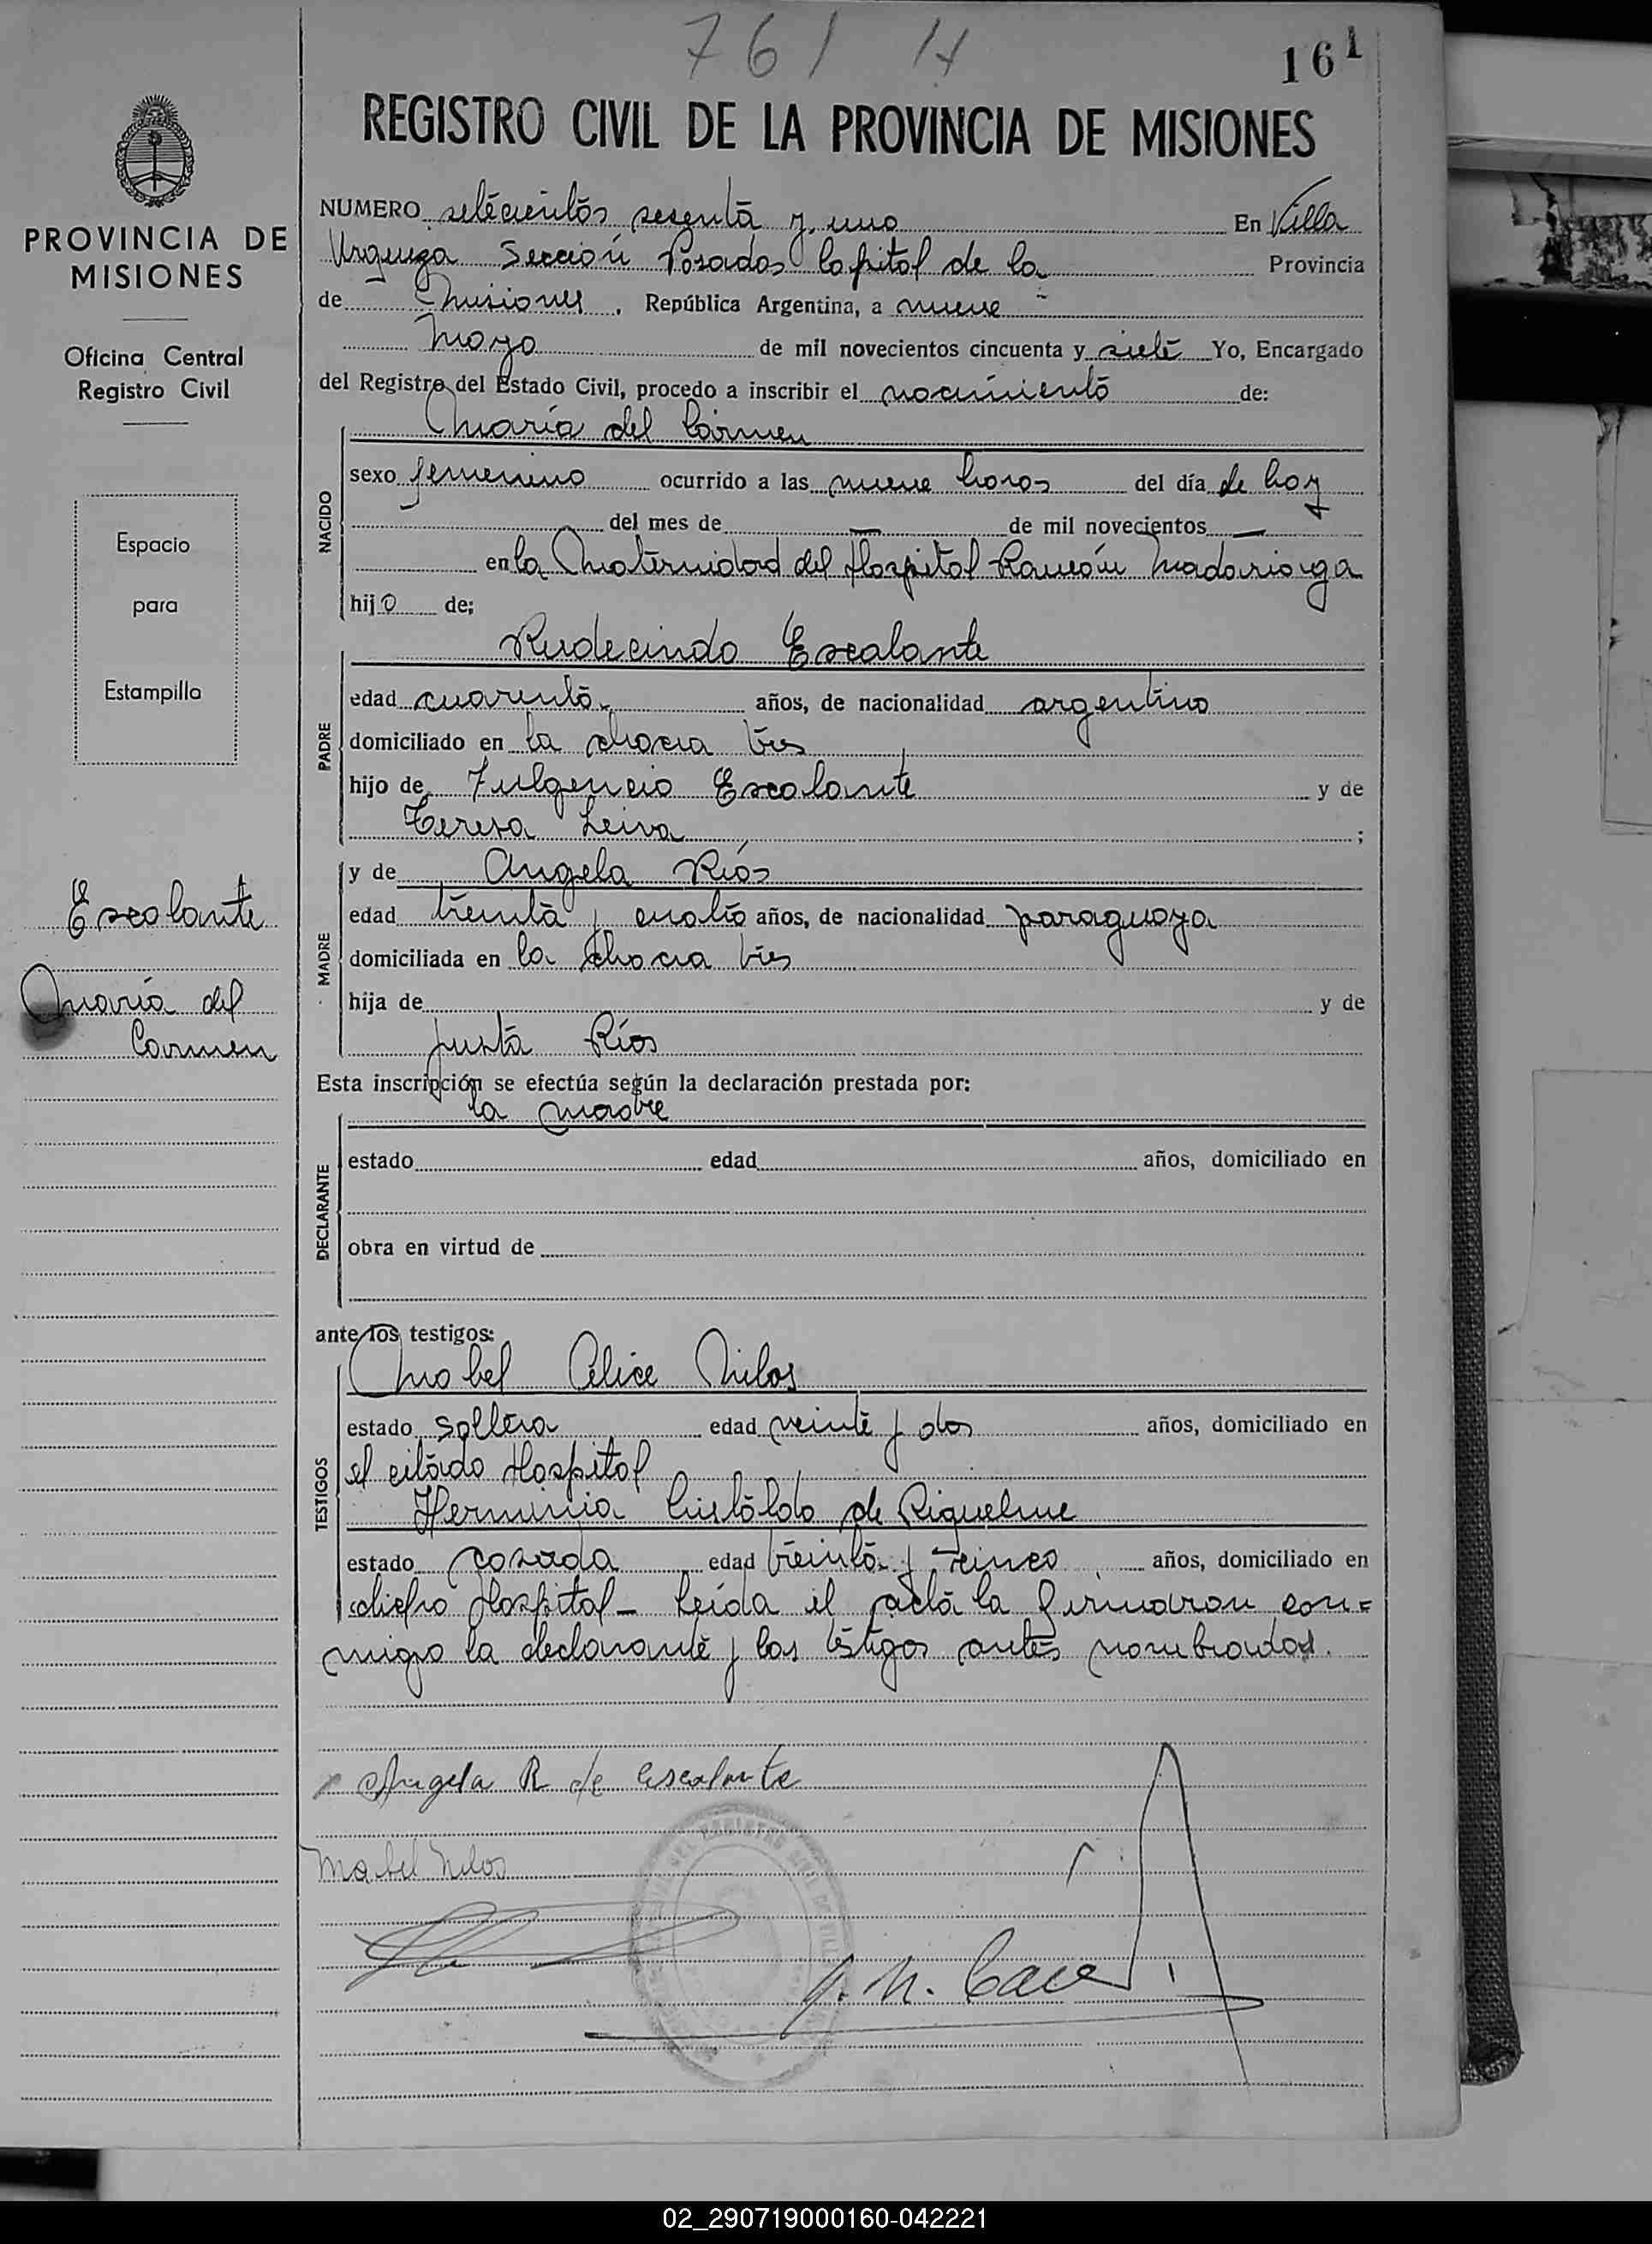 761 H
161
REGISTRO CIVIL DE LA PROVINCIA DE MISIONES
PROVINCIA DE
MISIONES
Oficina Central
Registro Civil
Espacio
para
Estampilla
Escolante
María del
Carmen
NUMERO setecientos sesenta y uno En Villa
Urquiza Sección Posadas Capital de la Provincia
de Misiones, República Argentina, a nueve
Mayo de mil novecientos cincuenta y siete Yo, Encargado
del Registro del Estado Civil, procedo a inscribir el nacimiento de:
María del Carmen
NACIDO
sexo femenino ocurrido a las nueve horas del día de hoy
del mes de — de mil novecientos —
en la Maternidad del Hospital Ramón Madariaga
hijo de;
Rudecindo Escalante
PADRE
edad cuarenta años, de nacionalidad argentino
domiciliado en la chacra tres
hijo de Fulgencio Escalante y de
Teresa Leiva ;
MADRE
y de Angela Ríos
edad treinta y cuatro años, de nacionalidad paraguaya
domiciliada en la chacra tres
hija de y de
Justa Ríos
Esta inscripción se efectúa según la declaración prestada por:
la madre
DECLARANTE
estado edad años, domiciliado en
obra en virtud de
ante los testigos:
Mabel Alice Milos
TESTIGOS
estado soltera edad veinte y dos años, domiciliado en
el citado Hospital
Herminia de Riquelme
estado casada edad treinta y cinco años, domiciliado en
dicho Hospital – Leída el acta la firmaron con=
migo la declarante y los testigos antes nombrados.
Angela R de escalante
Mabel Milos
02_290719000160-042221